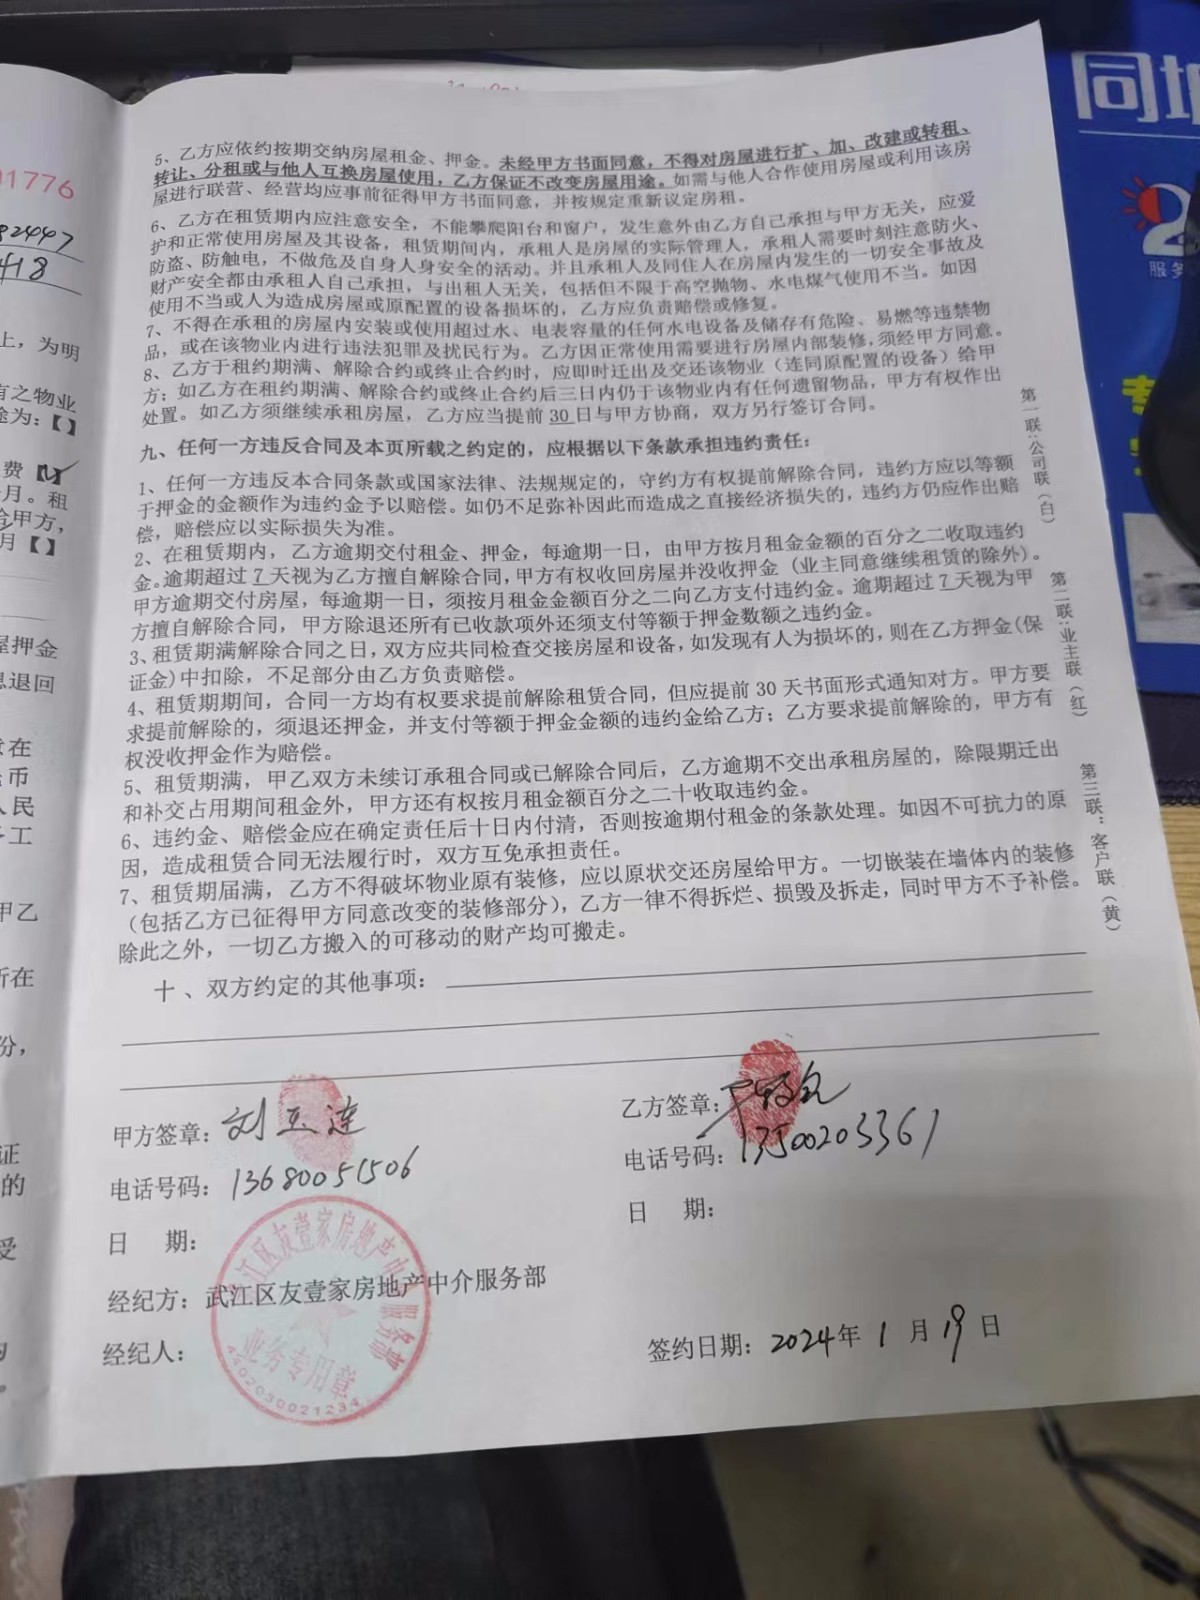 01776
82447
418
上，为明
有之物业
途为：【 】
费【✓】
月。租
给甲方，
月【 】
屋押金
息退回
意在
币
人民
工
甲乙
所在
份，
证
的
受
5、乙方应依约按期交纳房屋租金、押金。未经甲方书面同意，不得对房屋进行扩、加、改建或转租、
转让、分租或与他人互换房屋使用，乙方保证不改变房屋用途。如需与他人合作使用房屋或利用该房
屋进行联营、经营均应事前征得甲方书面同意，并按规定重新议定房租。
6、乙方在租赁期内应注意安全，不能攀爬阳台和窗户，发生意外由乙方自己承担与甲方无关，应爱
护和正常使用房屋及其设备，租赁期间内，承租人是房屋的实际管理人，承租人需要时刻注意防火、
防盗、防触电，不做危及自身人身安全的活动。并且承租人及同住人在房屋内发生的一切安全事故及
财产安全都由承租人自己承担，与出租人无关，包括但不限于高空抛物、水电煤气使用不当。如因
使用不当或人为造成房屋或原配置的设备损坏的，乙方应负责赔偿或修复。
7、不得在承租的房屋内安装或使用超过水、电表容量的任何水电设备及储存有危险、易燃等违禁物
品，或在该物业内进行违法犯罪及扰民行为。乙方因正常使用需要进行房屋内部装修，须经甲方同意。
8、乙方于租约期满、解除合约或终止合约时，应即时迁出及交还该物业（连同原配置的设备）给甲
方；如乙方在租约期满、解除合约或终止合约后三日内仍于该物业内有任何遗留物品，甲方有权作出
处置。如乙方须继续承租房屋，乙方应当提前30日与甲方协商，双方另行签订合同。
九、任何一方违反合同及本页所载之约定的，应根据以下条款承担违约责任：
1、任何一方违反本合同条款或国家法律、法规规定的，守约方有权提前解除合同，违约方应以等额
于押金的金额作为违约金予以赔偿。如仍不足弥补因此而造成之直接经济损失的，违约方仍应作出赔
偿，赔偿应以实际损失为准。
2、在租赁期内，乙方逾期交付租金、押金，每逾期一日，由甲方按月租金金额的百分之二收取违约
金。逾期超过7天视为乙方擅自解除合同，甲方有权收回房屋并没收押金（业主同意继续租赁的除外）。
甲方逾期交付房屋，每逾期一日，须按月租金金额百分之二向乙方支付违约金。逾期超过7天视为甲
方擅自解除合同，甲方除退还所有已收款项外还须支付等额于押金数额之违约金。
3、租赁期满解除合同之日，双方应共同检查交接房屋和设备，如发现有人为损坏的，则在乙方押金(保
证金)中扣除，不足部分由乙方负责赔偿。
4、租赁期期间，合同一方均有权要求提前解除租赁合同，但应提前30天书面形式通知对方。甲方要
求提前解除的，须退还押金，并支付等额于押金金额的违约金给乙方；乙方要求提前解除的，甲方有
权没收押金作为赔偿。
5、租赁期满，甲乙双方未续订承租合同或已解除合同后，乙方逾期不交出承租房屋的，除限期迁出
和补交占用期间租金外，甲方还有权按月租金额百分之二十收取违约金。
6、违约金、赔偿金应在确定责任后十日内付清，否则按逾期付租金的条款处理。如因不可抗力的原
因，造成租赁合同无法履行时，双方互免承担责任。
7、租赁期届满，乙方不得破坏物业原有装修，应以原状交还房屋给甲方。一切嵌装在墙体内的装修
（包括乙方已征得甲方同意改变的装修部分），乙方一律不得拆烂、损毁及拆走，同时甲方不予补偿。
除此之外，一切乙方搬入的可移动的财产均可搬走。
十、双方约定的其他事项：
第一联：公司联（白）
第二联：业主联（红）
第三联：客户联（黄）
甲方签章：刘玉莲
电话号码：13680051506
日 期：
经纪方：武江区友壹家房地产中介服务部
经纪人：
武江区友壹家房地产中介服务部
业务专用章
4402030021234
乙方签章：
电话号码：13500203361
日 期：
签约日期：2024年1月19日
同城
2
服务